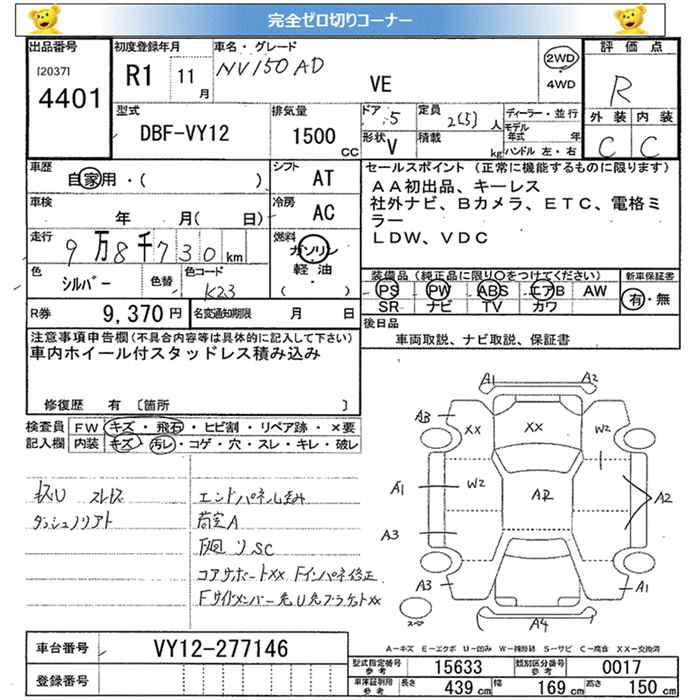 完全ゼロ切りコーナー
出品番号 初度登録年月 車名・グレード 評価点
[2037] 4401 R1 11月 NV150 AD VE 2WD・4WD R
型式 排気量 ドア 5 定員 2(5)人 ディーラー・並行 外装 内装
DBF-VY12 1500CC 形状 V 積載 kg モデル年式 年 ハンドル 左・右 C C
車歴 自家用・( ) シフト AT セールスポイント (正常に機能するものに限ります)
AA初出品、キーレス
車検 年 月( 日) 冷房 AC 社外ナビ、Bカメラ、ETC、電格ミ
ラー
走行 9万8千730km 燃料 ガソリン 軽油・( ) LDW、VDC
色 シルバー 色替 色コード K23 装備品 (純正品に限り○をつけてください) 新車保証書
PS PW ABS エアB AW 有・無
SR ナビ TV カワ
R券 9,370円 名変通知期限 月 日 後日品
車両取説、ナビ取説、保証書
注意事項申告欄(不具合内容等は具体的に記入して下さい)
車内ホイール付スタッドレス積み込み
修復歴 有〔箇所 〕
検査員 FW キズ・飛石・ヒビ割・リペア跡・×要
記入欄 内装 キズ・汚レ・コゲ・穴・スレ・キレ・破レ
ダッシュノリアト
エンドパネル歪み
荷室A
下廻りSC
コアサポートXX Fインパネ修正
A1 A2
A3 XX XX W2
A1 W2 AR A2
A3
A3 A1
A4
A-キズ E-エクボ U-凹み W-補修跡 S-サビ C-腐食 XX-交換済
車台番号 VY12-277146
登録番号
型式指定番号 参考 15633 類別区分番号 参考 0017
車庫証明用 参考 長さ 439cm 幅 169cm 高さ 150cm